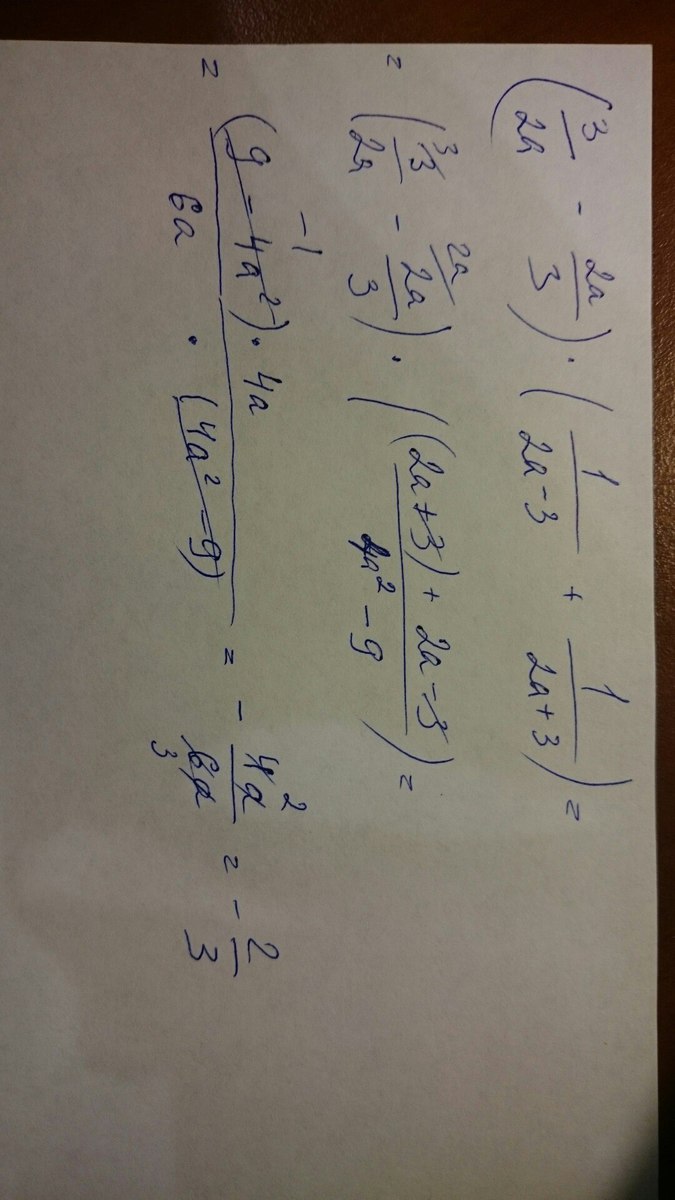 (3/2a - 2a/3) · (1/2a-3 + 1/2a+3) =
= (3 3/2a - 2a 2a/3) · ((2a+3) + 2a-3/4a² - 9) =
= (9 - 4a²) -1 · 4a/6a · (4a² - 9) = - 4a 2/6a 3 = - 2/3